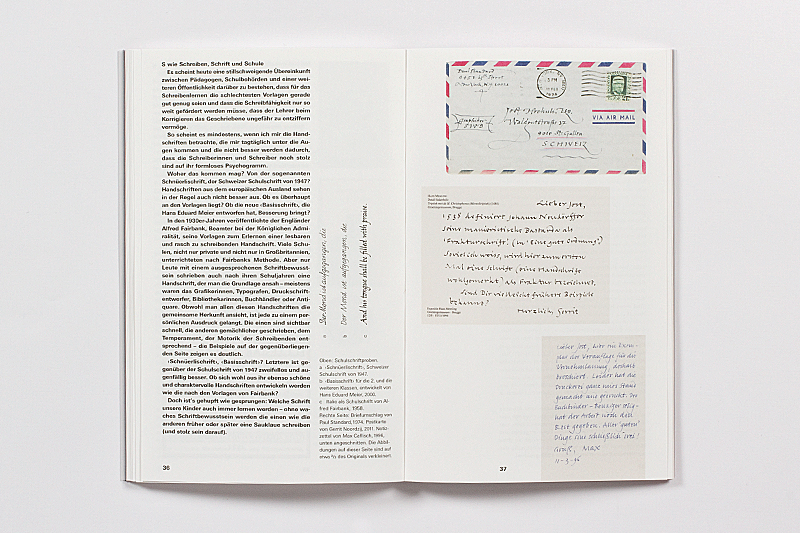 S wie Schreiben, Schrift und Schule
Es scheint heute eine stillschweigende Übereinkunft
zwischen Pädagogen, Schulbehörden und einer wei-
teren Öffentlichkeit darüber zu bestehen, dass für das
Schreibenlernen die schlechtesten Vorlagen gerade
gut genug seien und dass die Schreibfähigkeit nur so
weit gefördert werden müsse, dass der Lehrer beim
Korrigieren das Geschriebene ungefähr zu entziffern
vermöge.
So scheint es mindestens, wenn ich mir die Hand-
schriften betrachte, die mir tagtäglich unter die Au-
gen kommen und die nicht besser werden dadurch,
dass die Schreiberinnen und Schreiber noch stolz
sind auf ihr formloses Psychogramm.
Woher das kommen mag? Von der sogenannten
Schnüerlischrift, der Schweizer Schulschrift von 1947?
Handschriften aus dem europäischen Ausland sehen
in der Regel auch nicht besser aus. Ob es überhaupt
an den Vorlagen liegt? Ob die neue ‹Basisschrift›, die
Hans Eduard Meier entworfen hat, Besserung bringt?
In den 1930er-Jahren veröffentlichte der Engländer
Alfred Fairbank, Beamter bei der Königlichen Admi-
ralität, seine Vorlagen zum Erlernen einer lesbaren
und rasch zu schreibenden Handschrift. Viele Schu-
len, nicht nur private und nicht nur in Großbritannien,
unterrichteten nach Fairbanks Methode. Aber nur
Leute mit einem ausgesprochenen Schriftbewusst-
sein schrieben auch nach ihren Schuljahren eine
Handschrift, der man die Grundlage ansah – meistens
waren das Grafikerinnen, Typografen, Druckschrift-
entwerfer, Bibliothekarinnen, Buchhändler oder Anti-
quare. Obwohl man allen diesen Handschriften die
gemeinsame Herkunft ansieht, ist jede zu einem per-
sönlichen Ausdruck gelangt. Die einen sind sichtbar
schnell, die anderen gemächlicher geschrieben, dem
Temperament, der Motorik der Schreibenden ent-
sprechend – die Beispiele auf der gegenüberliegen-
den Seite zeigen es deutlich.
‹Schnüerlischrift›, ‹Basisschrift›? Letztere ist ge-
genüber der Schulschrift von 1947 zweifellos und au-
genfällig besser. Ob sich wohl aus ihr ebenso schöne
und charaktervolle Handschriften entwickeln werden
wie die nach den Vorlagen von Fairbank?
Doch ist's gehupft wie gesprungen: Welche Schrift
unsere Kinder auch immer lernen werden – ohne wa-
ches Schriftbewusstsein werden die einen wie die
anderen früher oder später eine Sauklaue schreiben
(und stolz sein darauf).
36
a Der Mond ist aufgegangen, die
b Der Mond ist aufgegangen, die
c And his tongue shall be filled with praise.
Oben: Schulschriftproben.
a ‹Schnüerlischrift›, Schweizer
Schulschrift von 1947.
b ‹Basisschrift› für die 2. und die
weiteren Klassen, entwickelt von
Hans Eduard Meier, 2000.
c Italic als Schulschrift von Al-
fred Fairbank, 1958.
Rechte Seite: Briefumschlag von
Paul Standard, 1974. Postkarte
von Gerrit Noordzij, 2011. Notiz-
zettel von Max Caflisch, 1996,
unten angeschnitten. Die Abbil-
dungen auf dieser Seite sind auf
des Originals verkleinert.
Paul Standard
PM
VIA AIR MAIL
9011 St. Gallen
SCHWEIZ
Lieber Jost,
1538 definiert Johann Neudörffer
seine manieristische Bastarda als
'Frakturschrift' (in 'Eine gute Ordnung').
Soviel ich weiss, wird hier zum ersten
Mal eine Schrift (eine Handschrift
wohlgemerkt) als Fraktur bezeichnet.
Sind Dir vielleicht frühere Beispiele
bekannt?
Herzlich, Gerrit
Lieber Jost, hier ein Exem-
plar der Vorauflage für die
Vernehmlassung, deshalb
broschiert. Leider hat die
Druckerei ganz
gemacht und gedruckt. Der
hat der Arbeit noch den
Rest gegeben. Aller guten
Dinge sind schließlich drei!
Gruß, Max
37